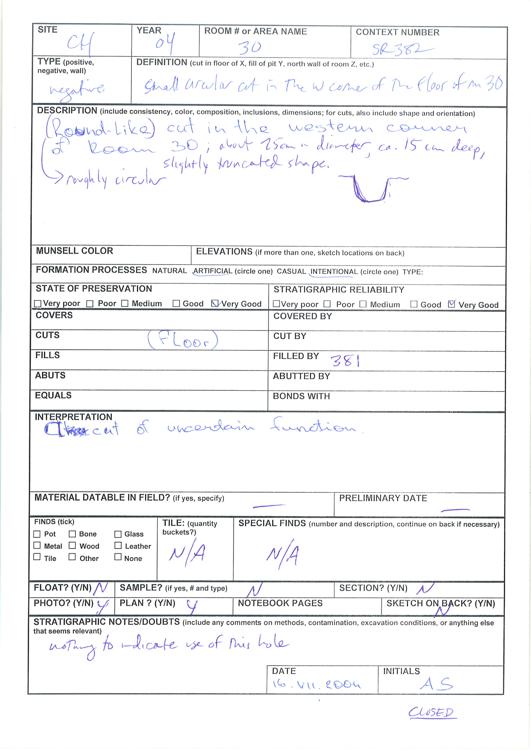 SITE YEAR ROOM # or AREA NAME CONTEXT NUMBER
CH 04 30 SR382
TYPE (positive, negative, wall) DEFINITION (cut in floor of X, fill of pit Y, north wall of room Z, etc.)
negative small circular cut in the W corner of the floor of rm 30
DESCRIPTION (include consistency, color, composition, inclusions, dimensions; for cuts, also include shape and orientation)
(Round-like) cut in the western corner
of Room 30; about 25cm in diameter, ca. 15 cm deep,
slightly truncated shape.
→ roughly circular
MUNSELL COLOR ELEVATIONS (if more than one, sketch locations on back)
FORMATION PROCESSES NATURAL ARTIFICIAL (circle one) CASUAL INTENTIONAL (circle one) TYPE:
STATE OF PRESERVATION STRATIGRAPHIC RELIABILITY
☐ Very poor ☐ Poor ☐ Medium ☐ Good ☑ Very Good ☐ Very poor ☐ Poor ☐ Medium ☐ Good ☑ Very Good
COVERS COVERED BY
CUTS (Floor) CUT BY
FILLS FILLED BY 381
ABUTS ABUTTED BY
EQUALS BONDS WITH
INTERPRETATION
cut of uncertain function.
MATERIAL DATABLE IN FIELD? (if yes, specify) — PRELIMINARY DATE —
FINDS (tick) TILE: (quantity buckets?) SPECIAL FINDS (number and description, continue on back if necessary)
☐ Pot ☐ Bone ☐ Glass
☐ Metal ☐ Wood ☐ Leather N/A N/A
☐ Tile ☐ Other ☐ None
FLOAT? (Y/N) N SAMPLE? (if yes, # and type) N SECTION? (Y/N) N
PHOTO? (Y/N) Y PLAN ? (Y/N) Y NOTEBOOK PAGES SKETCH ON BACK? (Y/N) N
STRATIGRAPHIC NOTES/DOUBTS (include any comments on methods, contamination, excavation conditions, or anything else
that seems relevant)
nothing to indicate use of this hole
DATE INITIALS
16.VII.2004 AS
CLOSED